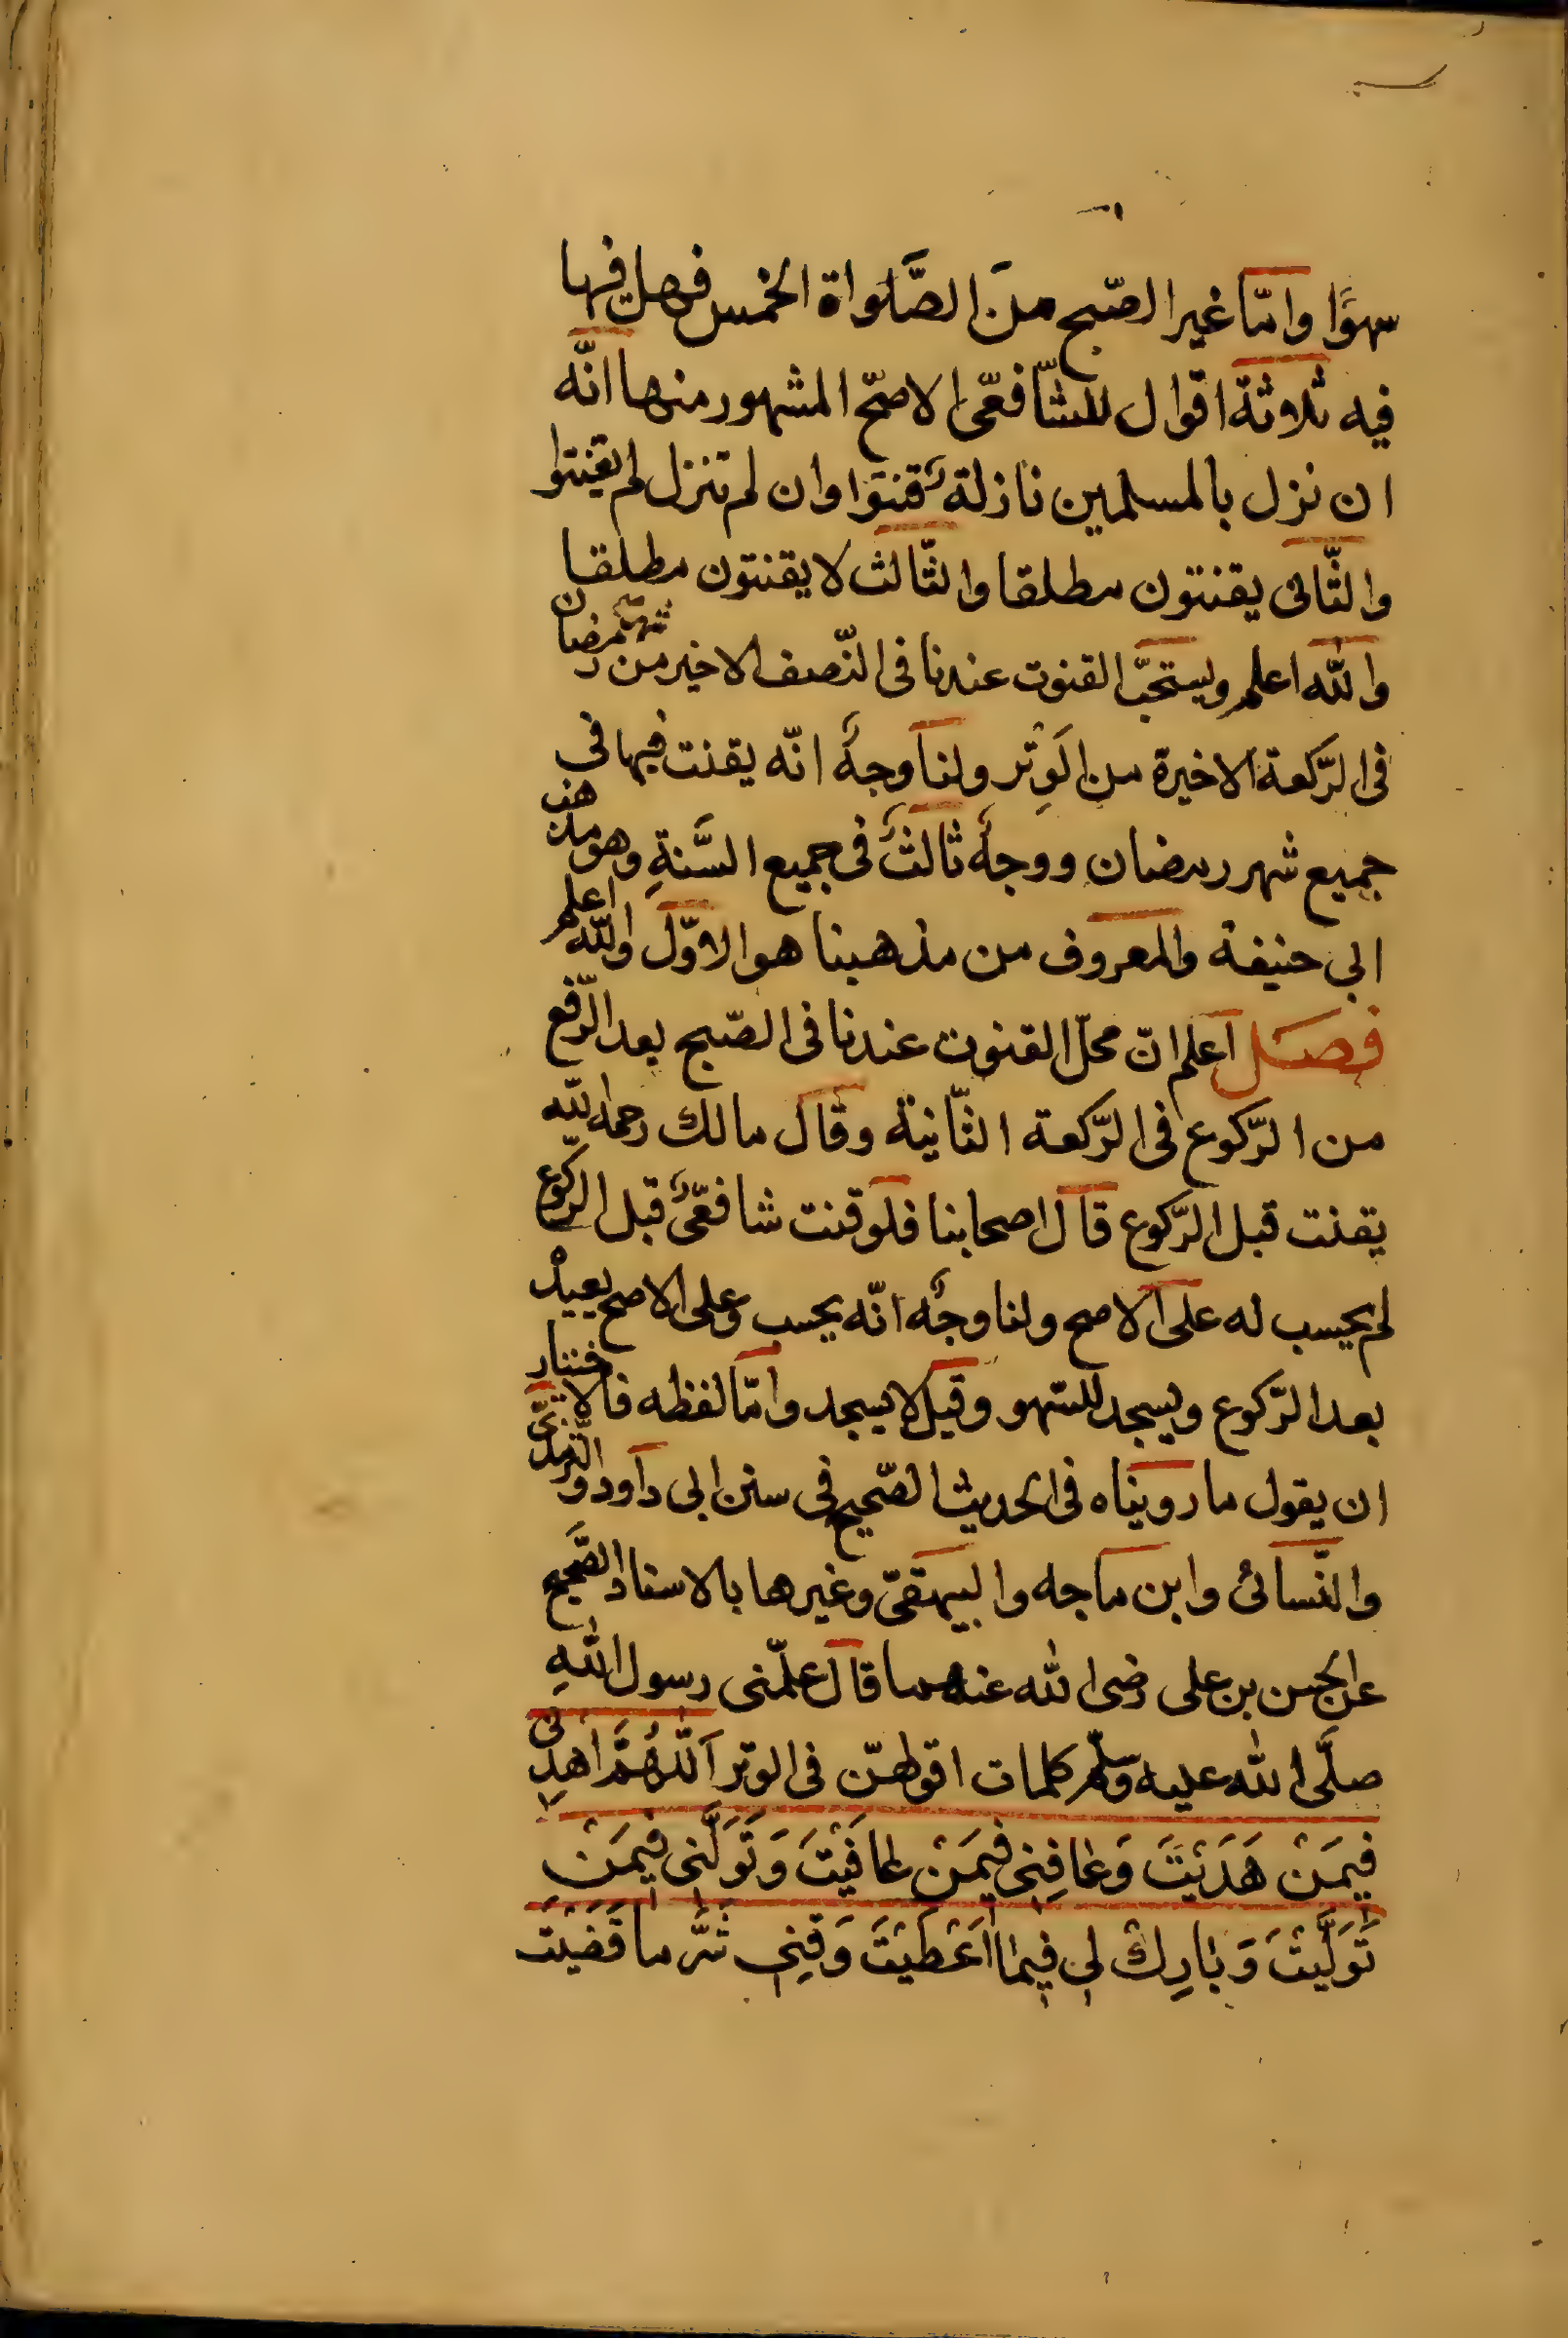 سهوًا وامّا غير الصّبح منَ الصَّلواة الخمس فهل فيها
فيه ثلاثة اقوال للشّافعّى الاصحّ المشهور منها انّه
ان نزل بالمسلمين نازلةٌ قنتوَا وان لم تنزل لم يقنتوا
والثّانى يقنتون مطلقا والثّالث لا يقنتون مطلقا
والله اعلم ويستحبّ القنوت عندنا فى النّصف الاخير من شهر رمضان
فى الرّكعة الاخيرة من الوِتْر ولنا وجهٌ انّه يقنت فيها فى
جميع شهر رمضان ووجهٌ ثالثٌ فى جميع السَّنةِ وهو مذهب
ابى حنيفة والمعروف من مذهبنا هو الاوّل والله اعلم
فصل اعلم انّ محلّ القنوت عندنا فى الصّبح بعد الرّفع
من الرّكوع فى الرّكعة الثّانية وقال مالك رحمه الله
يقنت قبل الرّكوع قال اصحابنا فلو قنت شافعّىٌ قبل الرّكوع
لم يحسب له على الاصح ولنا وجهٌ انّه يحسب وعلى الاصح يعيدْه
بعد الرّكوع ويسجد للسّهو وقيل لا يسجد وامّا لفظه فالاختنار
ان يقول ما رويناه فى الحديث الصّحيح فى سنن ابى داود والتّرمذىّ
والنّسائى وابن ماجه والبيهقىّ وغيرها بالاسناد الصَّحيح
عن الحسن بن على رضى الله عنهما قال علّمنى رسول اللهِ
صلَّى الله عليه وسلّم كلمات اقولهنّ فى الوتر اَللّٰهُمَّ اهْدِنى
فِيمَنْ هَدَيْتَ وَعٰافِنِى فِيمَنْ عٰافَيْتَ وَتَوَلَّنِى فِيمَنْ
تَوَلَّيْتَ وَبٰارِكْ لِى فِيمٰا اَعْطَيْتَ وَقِنِى شَرَّ مٰا قَضَيْتَ